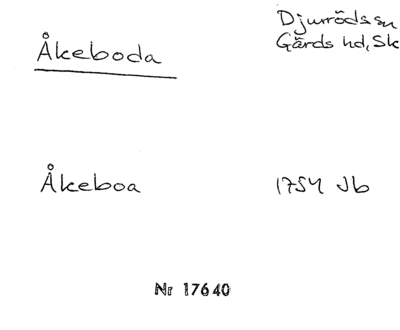 Åkeboda
Djurröds sn
Gärds hd, Sk
Åkeboa
1754 Jb
Nr 17640